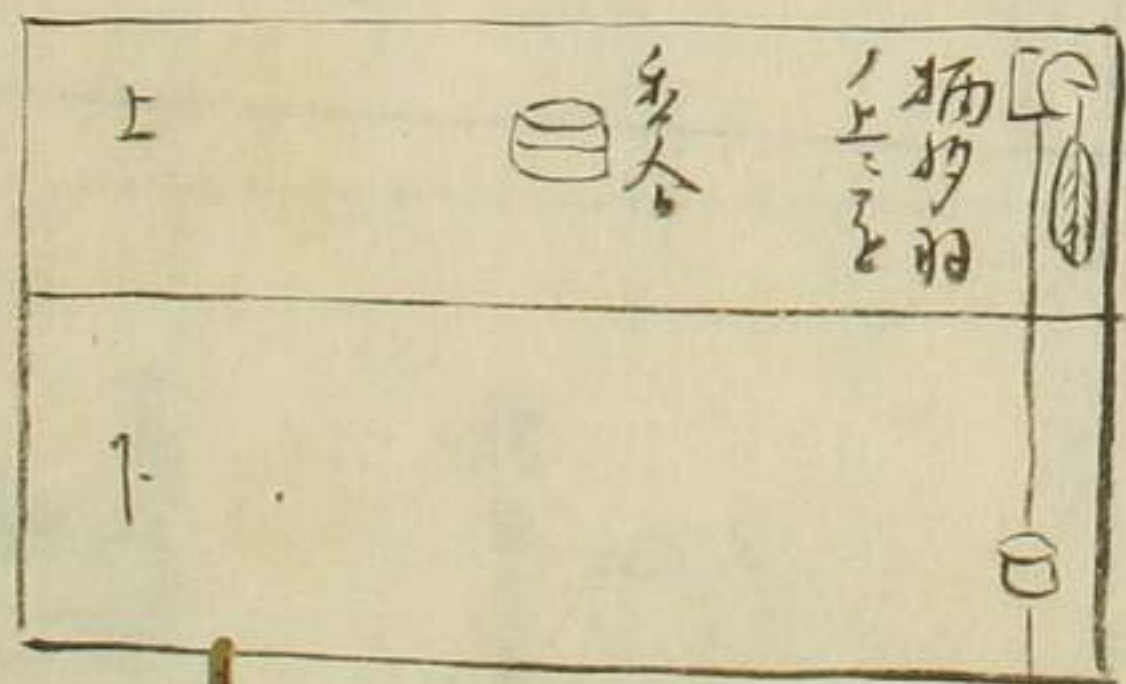 柄杓羽
ノ上ニ置
香合
上
下